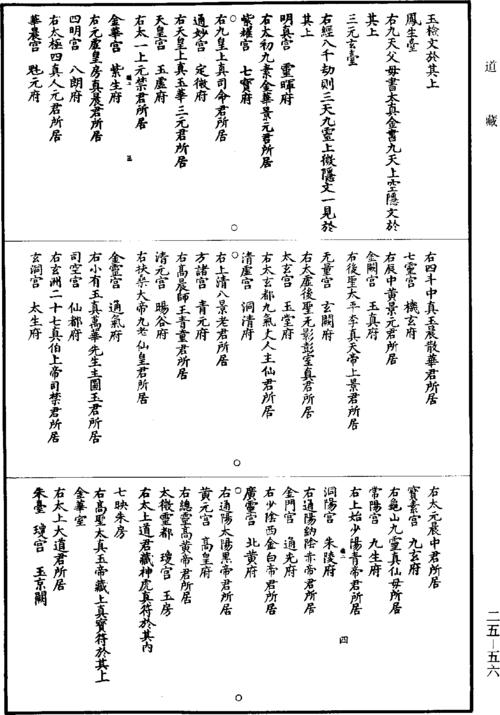 道藏
玉檢文於其上
鳳生臺
右九天父母書本真金書九天上空隱文於
其上
三元玄臺
右經八千劫則三天九靈上微隱文一見於
其上
明真宮 靈暉府
右太初九素金華景元君所居
紫耀宮 七寶府
右九皇上真司命君所居
通妙宮 定微府
右天皇上真玉華三元君所居
天皇宮 玉虛府
右太一上元禁君所居
金華宮 紫生府
右元虛皇房真晨君所居
四明宮 八朗府
右太極四真人元君所居
華晨宮 魁元府
右四斗中真玉晨散華君所居
七靈宮 機玄府
右辰中黃景元君所居
金闕宮 玉真府
右後聖太平李真天帝上景君所居
元量宮 玄闕府
右太虛後聖元影彭室真君所居
太玄宮 玉堂府
右太玄都九氣丈人主仙君所居
清虛宮 洞清府
右上清八景老君所居
方諸宮 青元府
右高晨師玉青童君所居
清元宮 暘谷府
右扶桑大帝九老仙皇君所居
金靈宮 通氣府
右小有玉真萬華先生主圖玉君所居
司空宮 仙都府
右玄洲二十七真伯上帝司禁君所居
玄洞宮 太生府
右太元晨中君所居
寶素宮 九玄府
右龜山九靈真仙母所居
常陽宮 九生府
右上始少陽青帝君所居
四
洞陽宮 朱陵府
右通陽鈉陰赤帝君所居
金門宮 通光府
右少陰西金白帝君所居
廣靈宮 北黃府
右通陽太陽黑帝君所居
黃元宮 高皇府
右總靈高黃帝君所居
太微靈都 瓊宮 玉房
右太上道君藏神虎真符於其內
七映朱房
右高聖太真玉帝藏上真寶符於其上
金華室
右太上大道君所居
朱臺 瓊宮 玉京闕
二五—五六